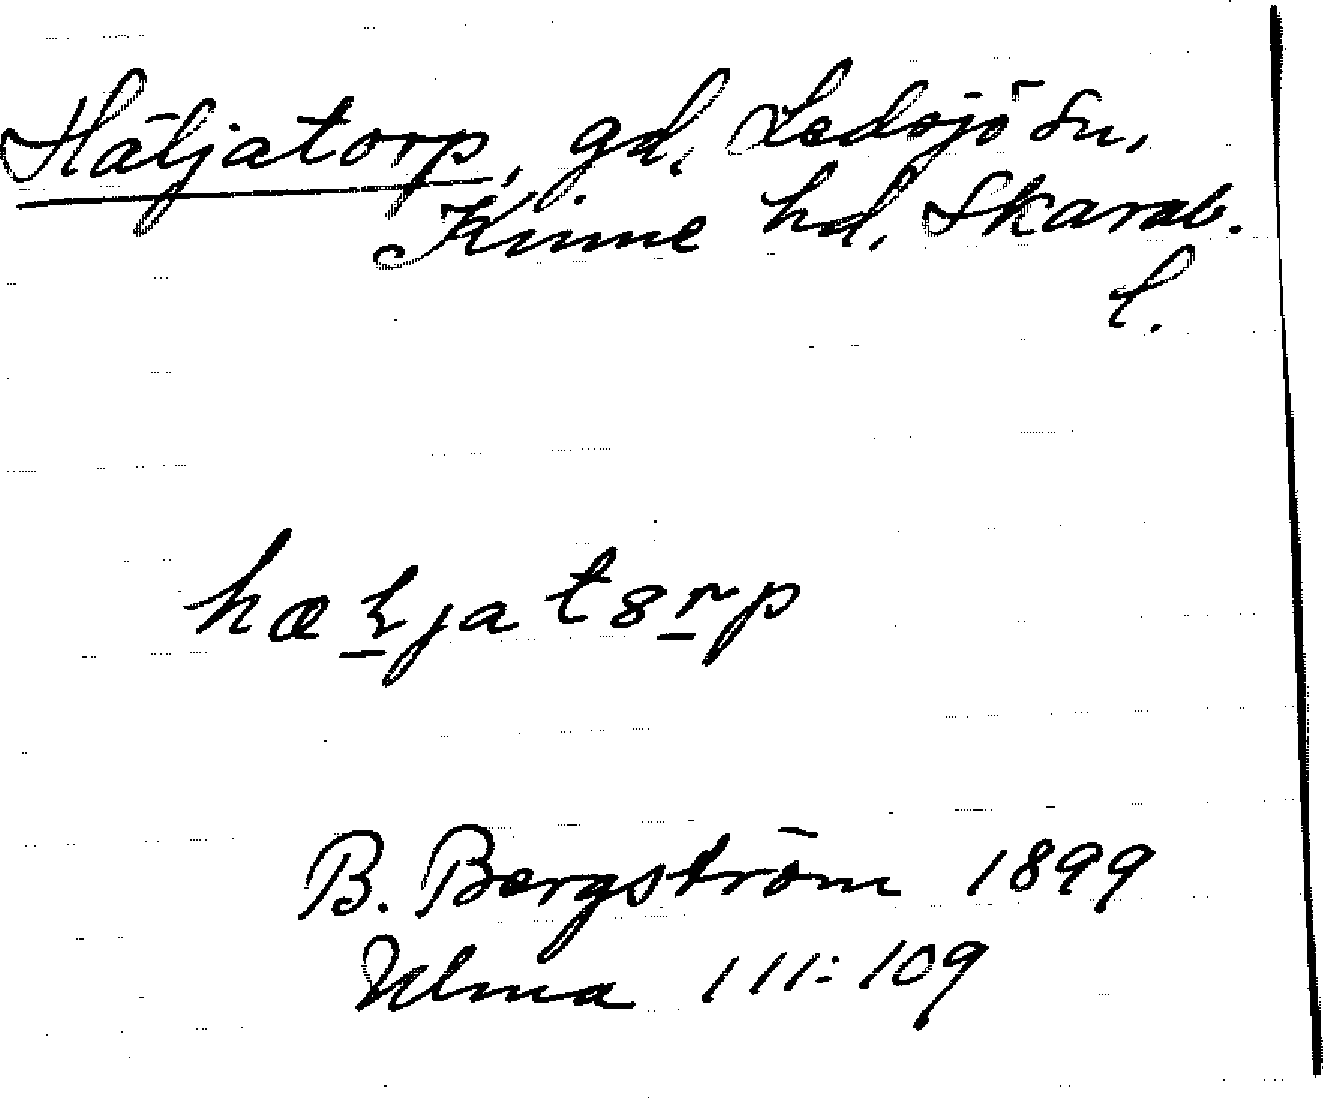 Häljatorp, gd, Ledsjö sn,
Kinne hd, Skarab.
l.
B. Bergström 1899
Ulma 111:109